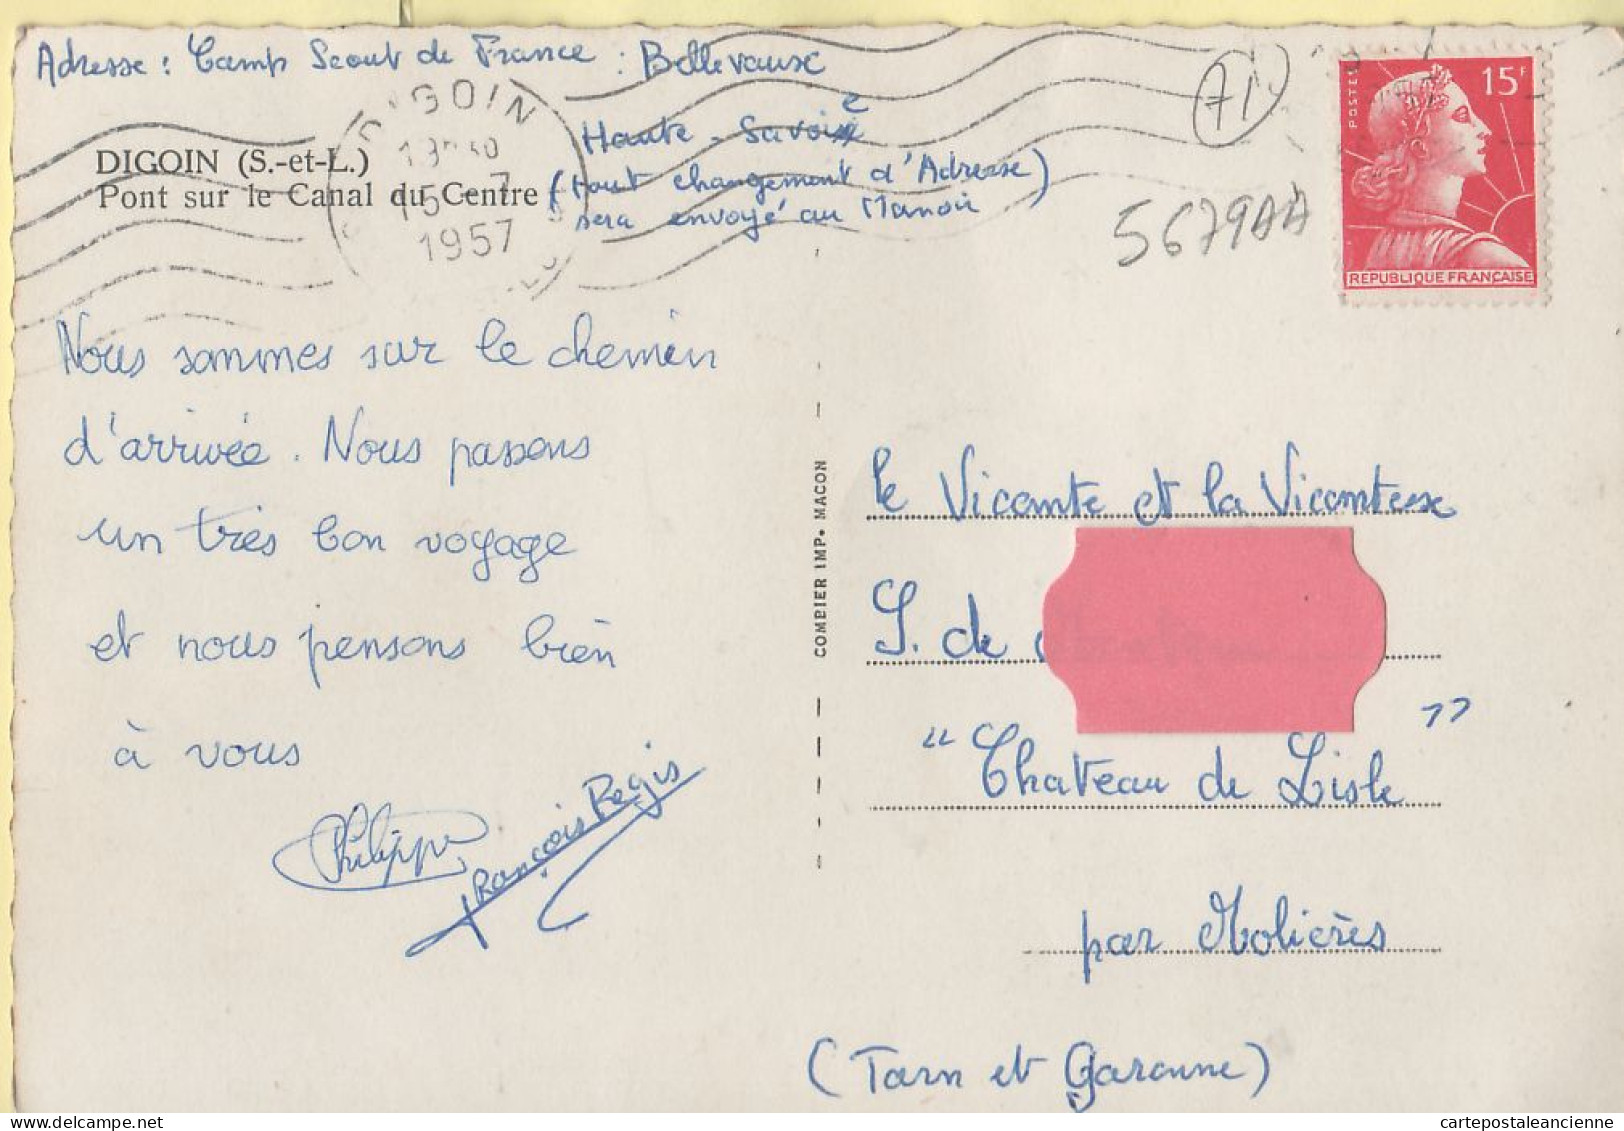 Adresse : Camp Scout de France : Bellevaux
Haute - Savoie
(tout changement d'Adresse)
sera envoyé au Manoir
DIGOIN (S.-et-L.)
Pont sur le Canal du Centre
DIGOIN
15 - 7
1957
71
5679AA
POSTES
15F
REPUBLIQUE FRANÇAISE
Nous sommes sur le chemin
d'arrivée. Nous passons
un très bon voyage
et nous pensons bien
à vous
Philippe
François Régis
COMBIER IMP. MACON
le Vicomte et la Vicomtesse
S. de
"Chateau de Lisle"
par Molières
(Tarn et Garonne)
cartepostaleancienne